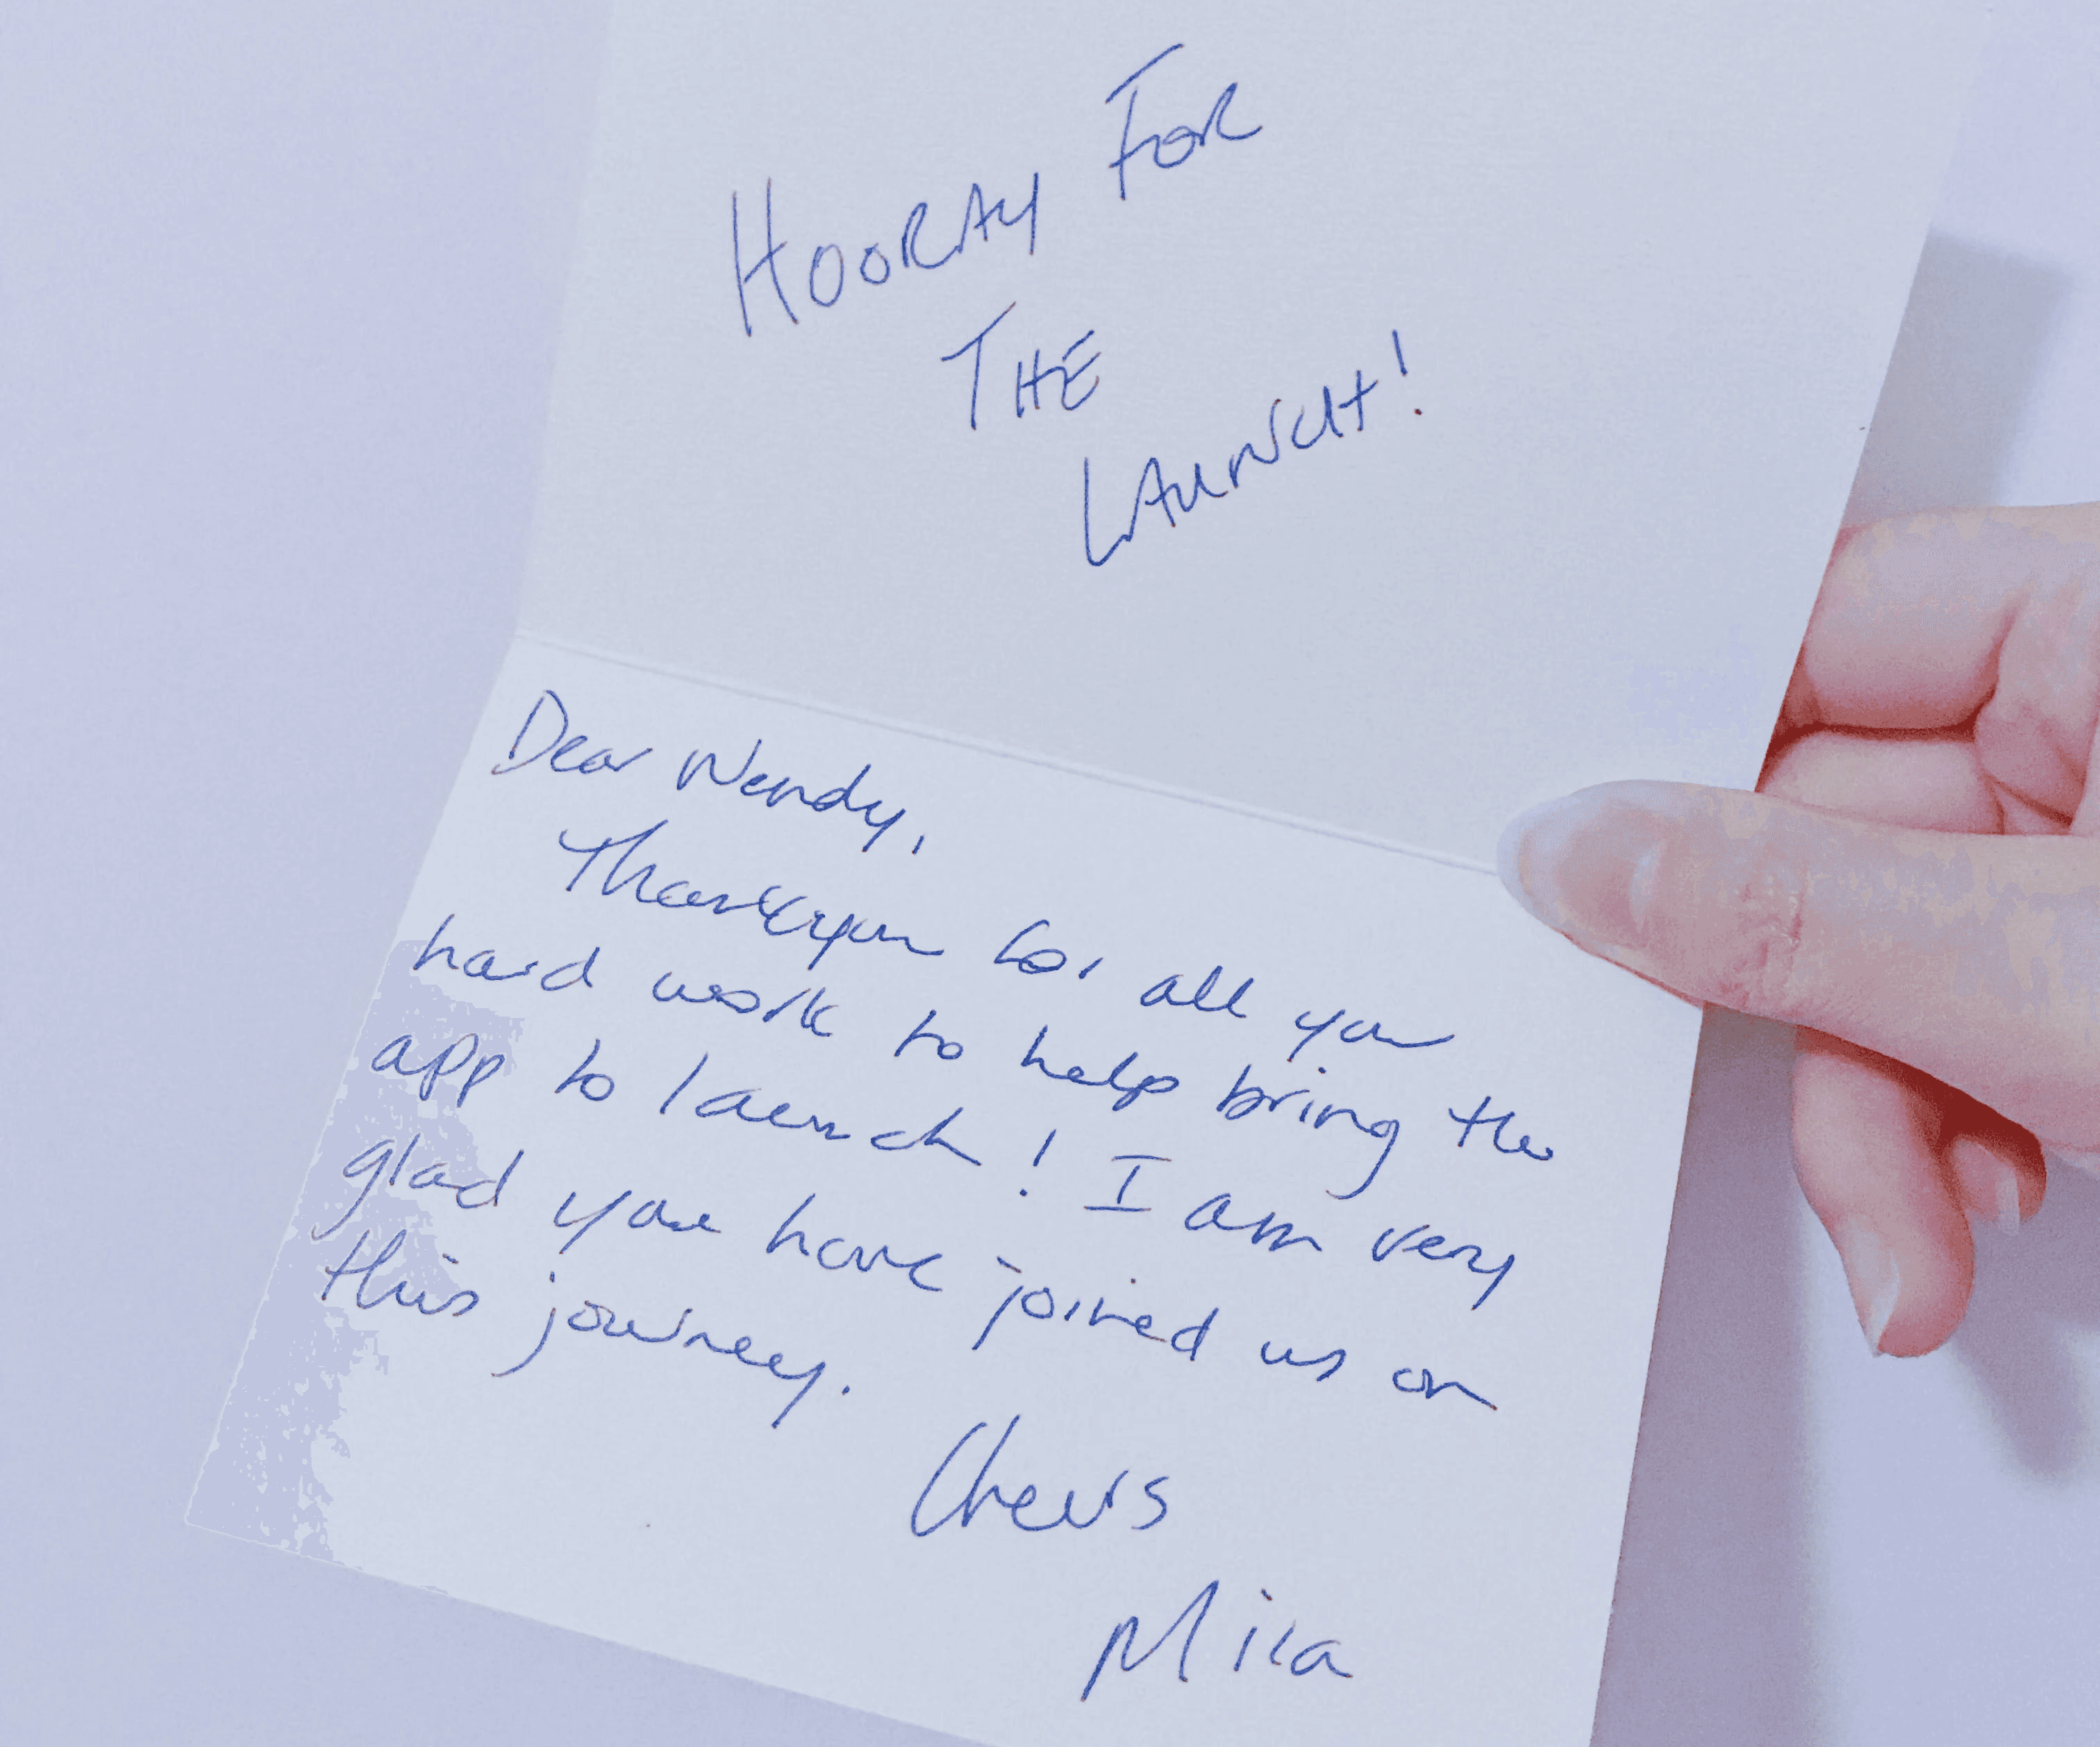 HOORAY FOR
THE
LAUNCH!
Dear Wendy,
Thankyou for all you
hard work to help bring the
app to launch! I am very
glad you have joined us on
this journey.
Cheers